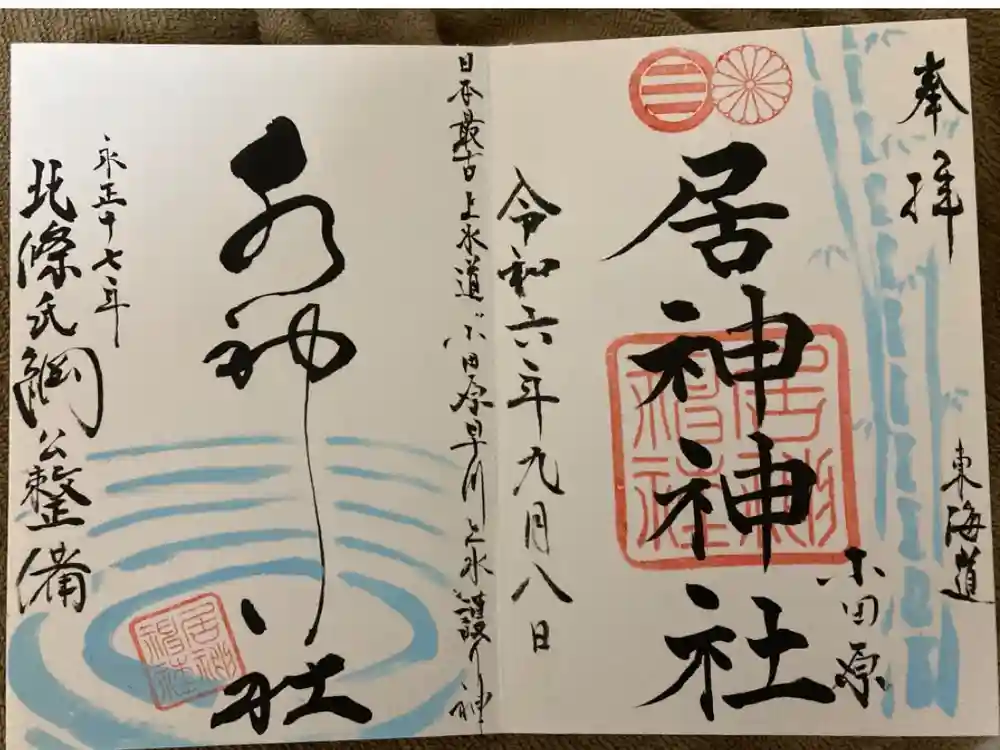 奉拝
東海道
小田原
居神神社
令和六年九月八日
日本最古上水道 小田原早川上水 護り神
水神社
永正十七年
北條氏綱公整備
居神神社
居神神社